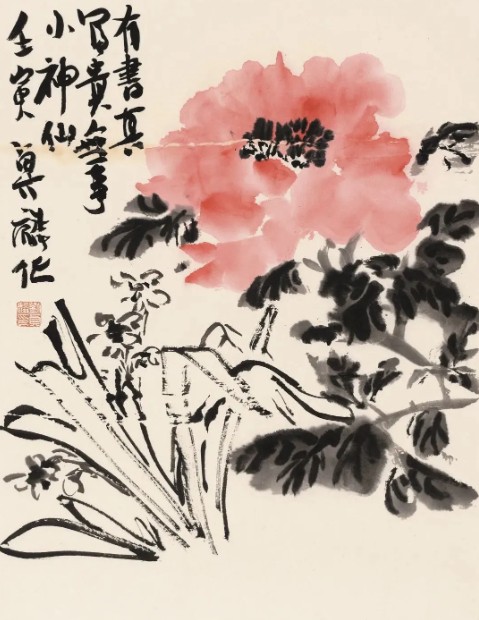 有書真
富貴無事
小神仙
壬寅 麟作